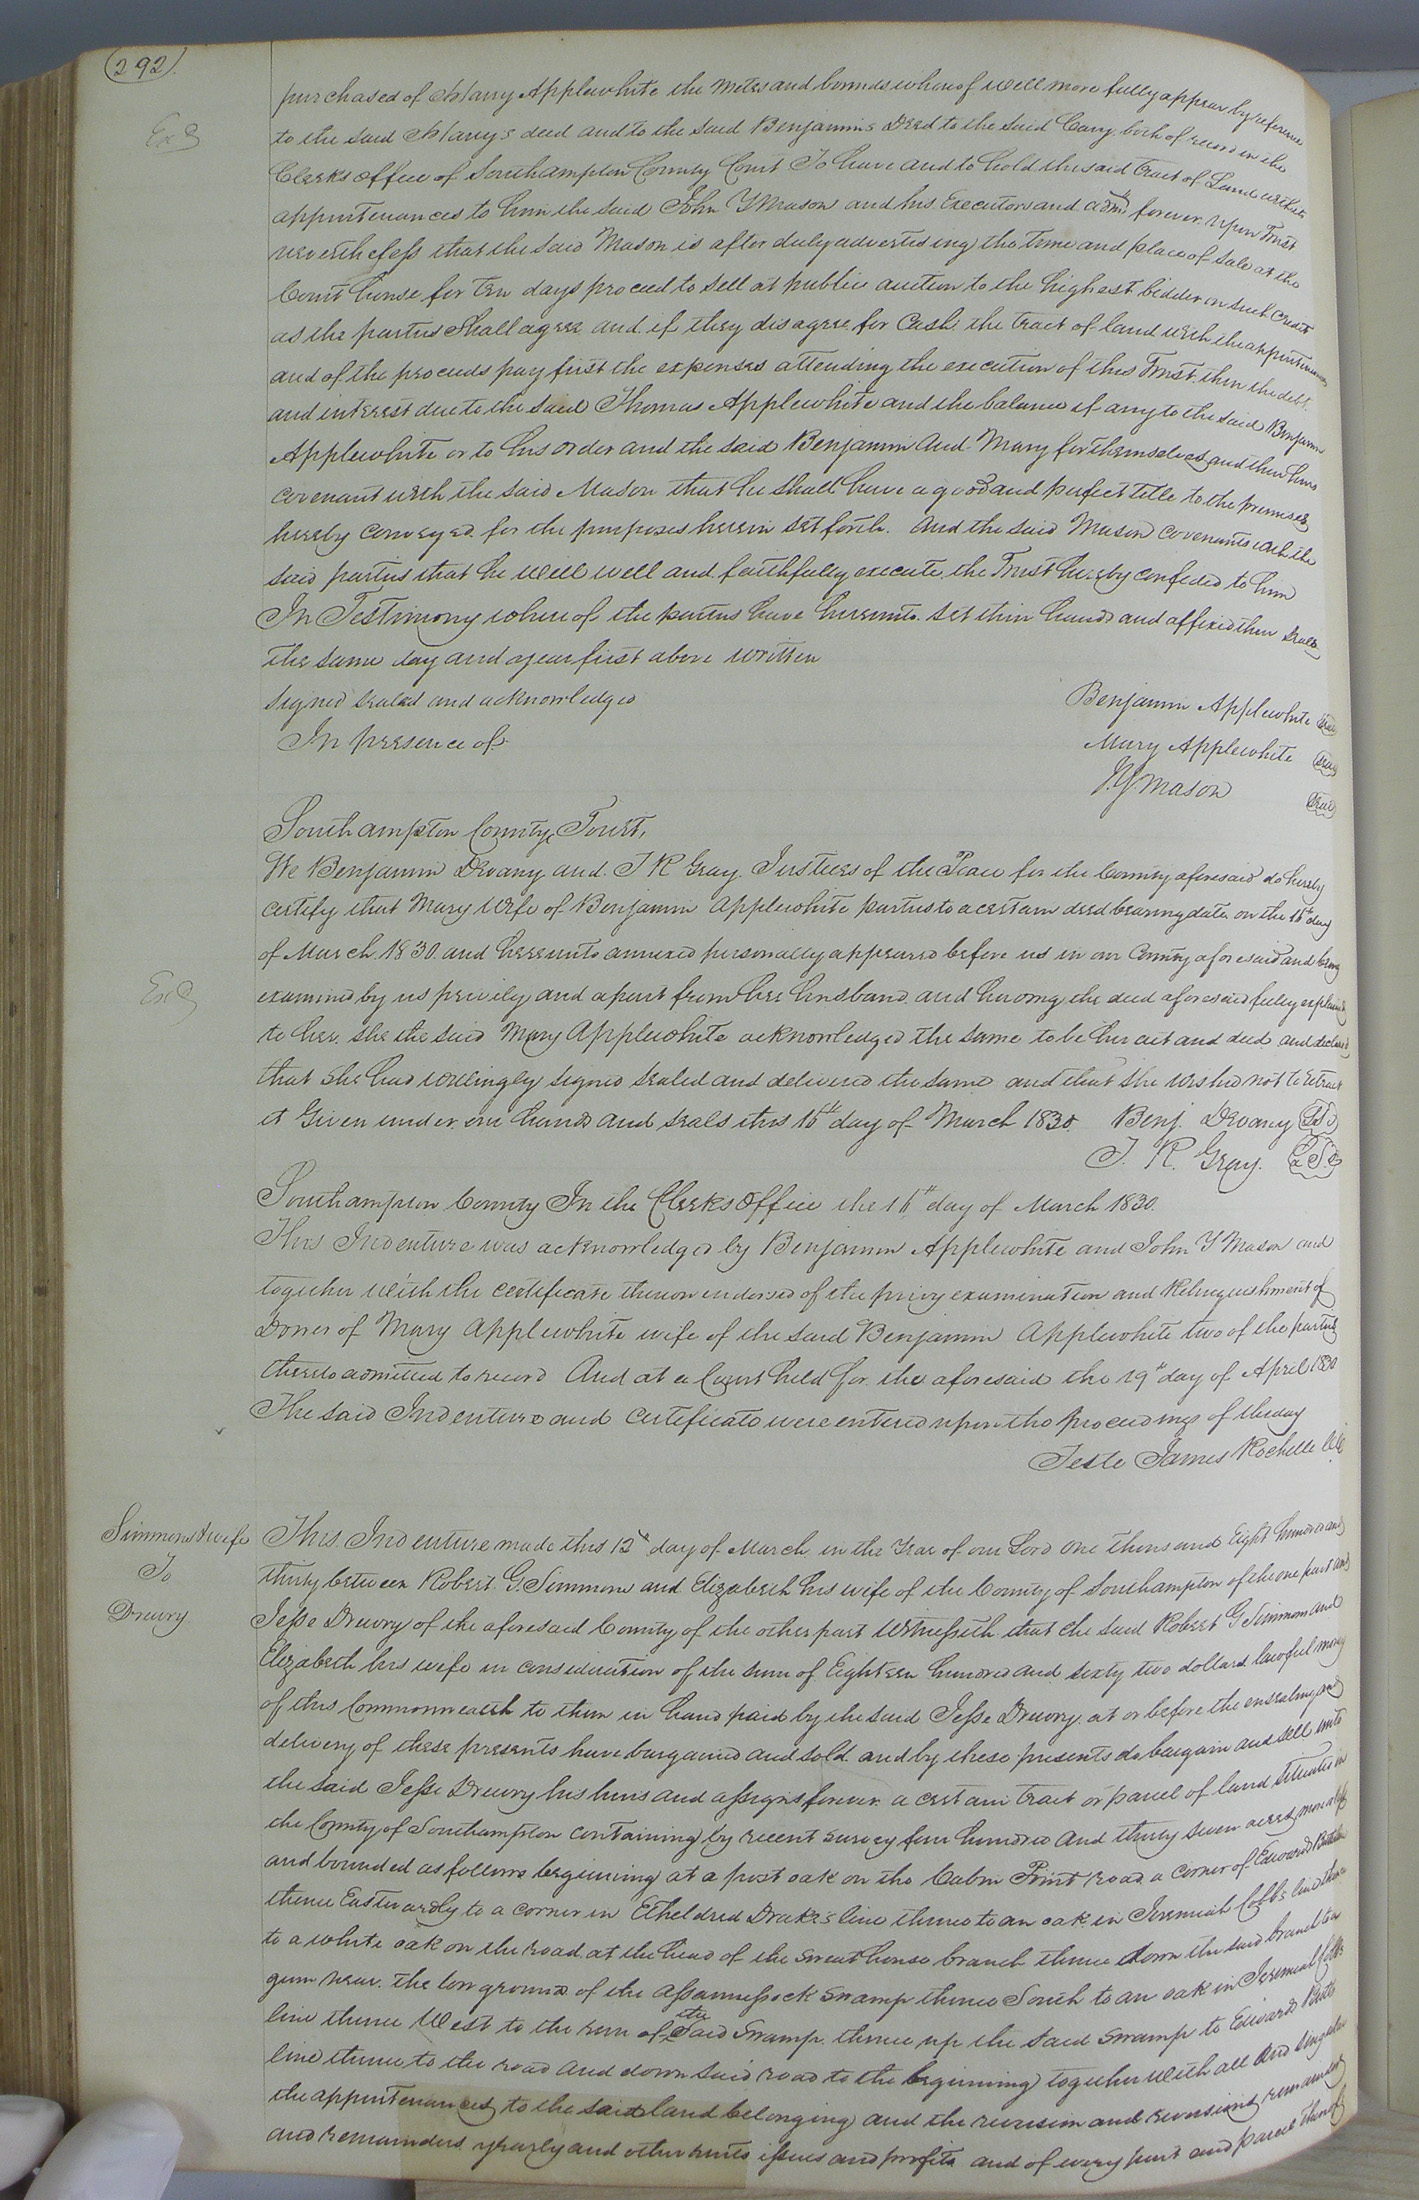 292.
purchased of Harry Applewhite the metes and bounds whereof will more fully appear by reference
Exd
to the said Harry's deed and to the said Benjamins Deed to the said Cary both of record in the
Clerks office of Southampton County Court To have and to hold the said tract of Land with its
appurtenances to him the said John Y Mason and his Executors and adms forever. upon Trust
nevertheless that the said Mason is after duly advertising the time and place of sale at the
Court house for Ten days proceed to sell at public auction to the highest bidder on such credit
as the parties shall agree and if they disagree for Cash. the tract of land with the appurtenances
and of the proceeds pay first the expenses attending the execution of this Trust. then the debt.
and interest due to the said Thomas Applewhite and the balance if any to the said Benjamin
Applewhite or to his order and the said Benjamin and Mary for themselves and their heirs
covenant with the said Mason that he shall have a good and perfect title to the premises
hereby conveyed for the purposes herein set forth. And the said Mason covenants with the
said parties that he will well and faithfully execute the Trust hereby confided to him
In Testimony whereof the parties have hereunto set their hands and affixed their seals
the same day and year first above written
Signed sealed and acknowledged
In presence of
Benjamin Applewhite Seal
Mary Applewhite Seal
J.Y Mason Seal
Southampton County, Towit,
We Benjamin Devany and J R Gray Justices of the Peace for the County aforesaid do hereby
certify that Mary Wife of Benjamin Applewhite parties to a certain deed bearing date on the 15th day
of March 1830. and hereunto annexed personally appeared before us in our County aforesaid and being
Exd
examined by us privily and apart from her husband. and having the deed aforesaid fully explained
to her. she the said Mary Applewhite acknowledged the same to be her act and deed and declared
that she had willingly signed sealed and delivered the same and that she wished not to retract
it Given under our hands and seals this 15th day of March 1830. Benj. Devany LS
J. R. Gray. LS
Southampton County In the Clerks office the 16th day of March 1830.
This Indenture was acknowledged by Benjamin Applewhite and John Y Mason and
together with the certificate thereon endorsed of the privy examination and Relinquishment of
Dower of Mary Applewhite wife of the said Benjamin Applewhite two of the parties
thereto admitted to record And at a Court held for the aforesaid the 19th day of April 1830
The said Indenture and certificate were entered upon the proceedings of the day
Teste James Rochelle CC
Simmons & wife
To
Drewry
This Indenture made this 12th day of March in the Year of our Lord one thousand Eight hundred and
thirty between Robert G. Simmons and Elizabeth his wife of the County of Southampton of the one part and
Jesse Drewry of the aforesaid County of the other part Witnesseth that the said Robert G Simmons and
Elizabeth his wife in consideration of the sum of Eighteen hundred and sixty two dollars lawful money
of this Commonwealth to them in hand paid by the said Jesse Drewry, at or before the ensealing and
delivery of these presents have bargained and sold and by these presents do bargain and sell unto
the said Jesse Drewry his heirs and assigns forever. a certain tract or parcel of land situate in
the County of Southampton containing by recent survey four hundred and thirty seven acres, more or less
and bounded as follows beginning at a post oak on the Cabin Point road a corner of Edward
thence Eastwardly to a corner in Etheldred Drake's line thence to an oak in Jeremiah Cobb's line thence
to a white oak on the road at the head of the sweat house branch thence down the said branch to a
gum near. the low grounds of the assamussock swamp thence South to an oak in Jeremiah Cobb's
line thence West to the run of the said Swamp. thence up the said swamp to Edward Butts
line thence to the road and down said road to the beginning together with all and singular
the appurtenances to the said land belonging and the reversion and reversions remainder
and remainders yearly and other rents issues and profits and of every part and parcel thereof